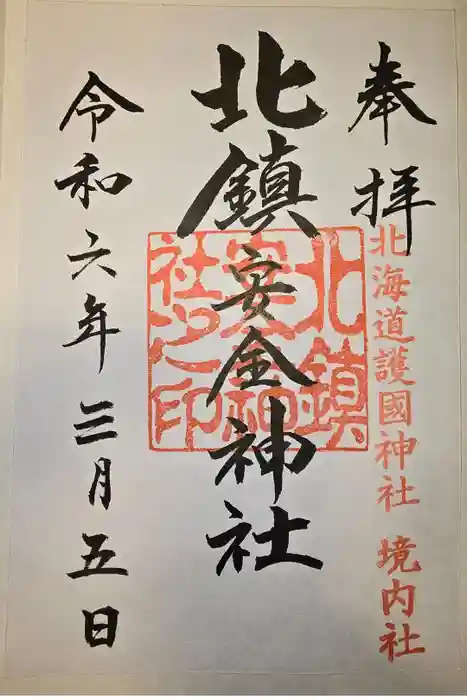 奉拝
北海道護國神社 境内社
北鎮安全神社
北鎮安全神社之印
令和六年三月五日